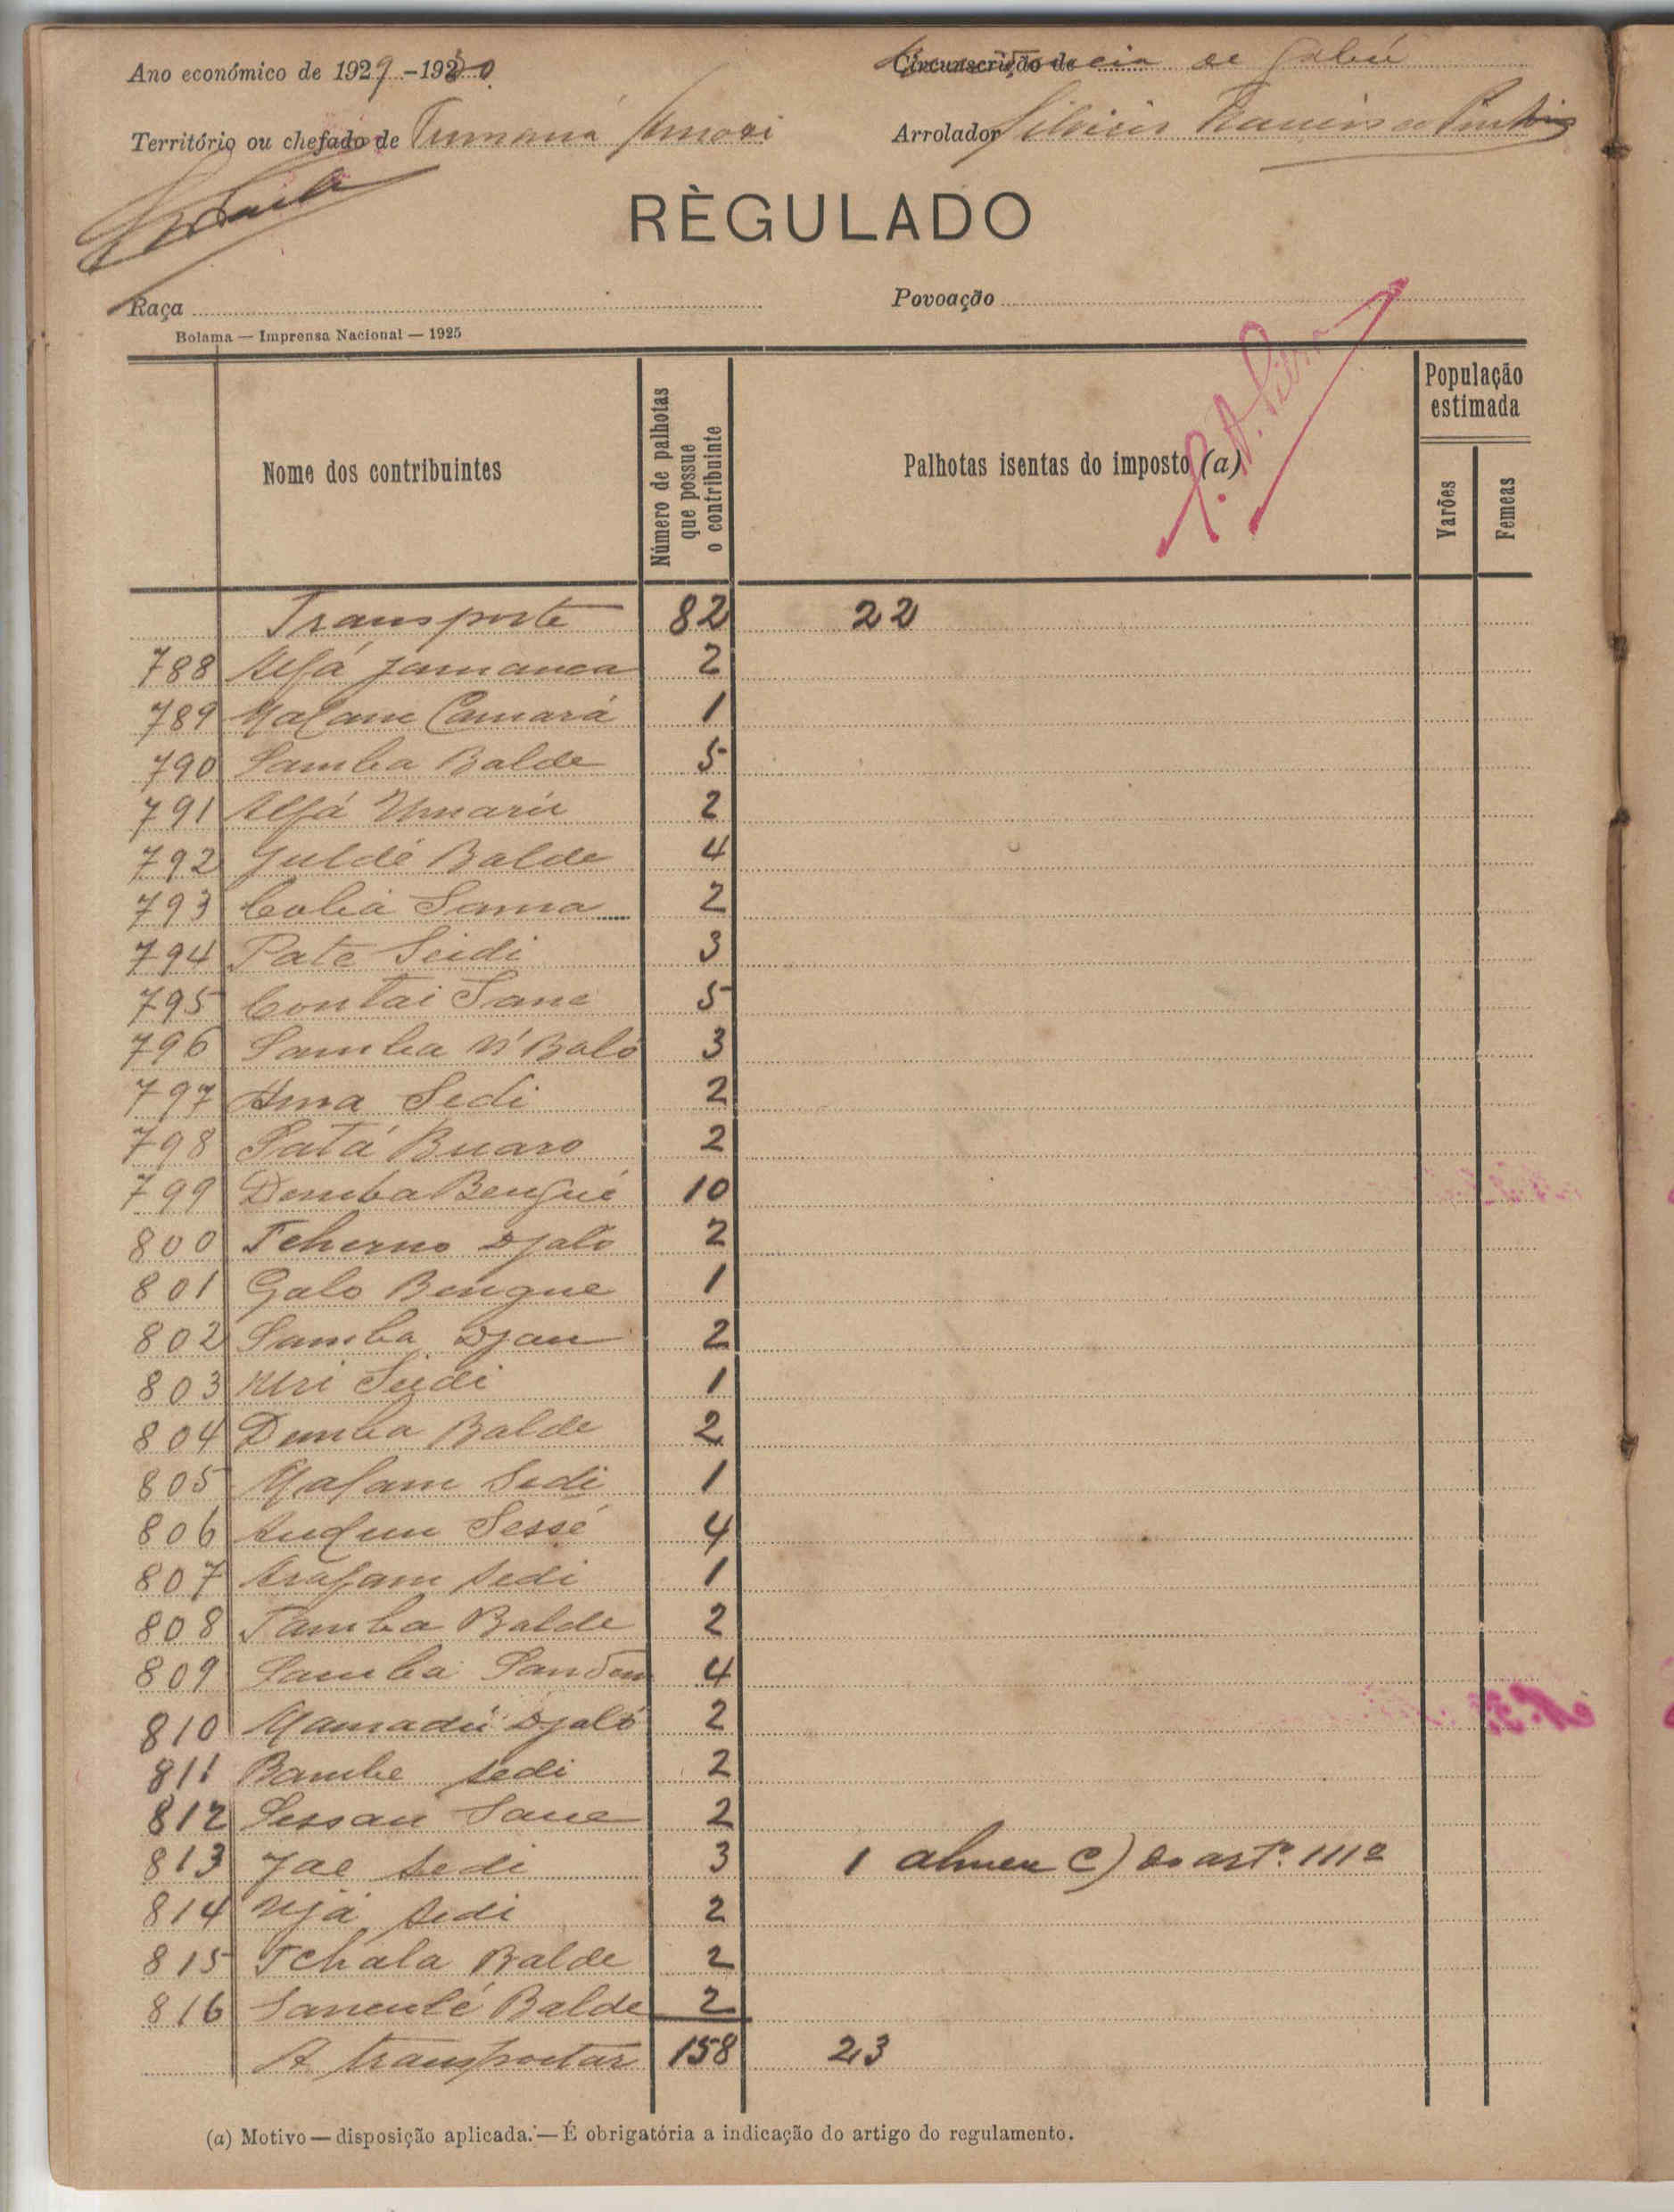 Ano económico de 1929-1930
Circunscrição de de Gabú
Território ou chefado de Tumaná
Arrolador
RÈGULADO
Raça
Povoação
Bolama — Imprensa Nacional — 1925
Nome dos contribuintes
Número de palhotas que possue o contribuinte
Palhotas isentas do imposto (a)
População estimada
Varões
Femeas
Transporte 82 22
788 Alfá Jamanca 2
789 Malam Camará 1
790 Samba Balde 5
791 Alfá Umarú 2
792 Juldé Balde 4
793 Sama 2
794 Pate Seidi 3
795 Contai Sané 5
796 Samba N'Baló 3
797 Ama Sedi 2
798 Satá Buaro 2
799 Demba Bengué 10
800 Tcherno Djaló 2
801 Galo Bengue 1
802 Samba Djau 2
803 Seidi 1
804 Demba Balde 2
805 Malam Sedi 1
806 Sessé 4
807 Arafam Sedi 1
808 Samba Balde 2
809 Samba 4
810 Mamadú Djaló 2
811 Bambe Sedi 2
812 Sessau Sane 2
813 Jae Sedi 3 1 alinea C) do artº. 111º
814 Sedi 2
815 Tchala Balde 2
816 Sanculé Balde 2
A transportar 158 23
(a) Motivo — disposição aplicada. — É obrigatória a indicação do artigo do regulamento.